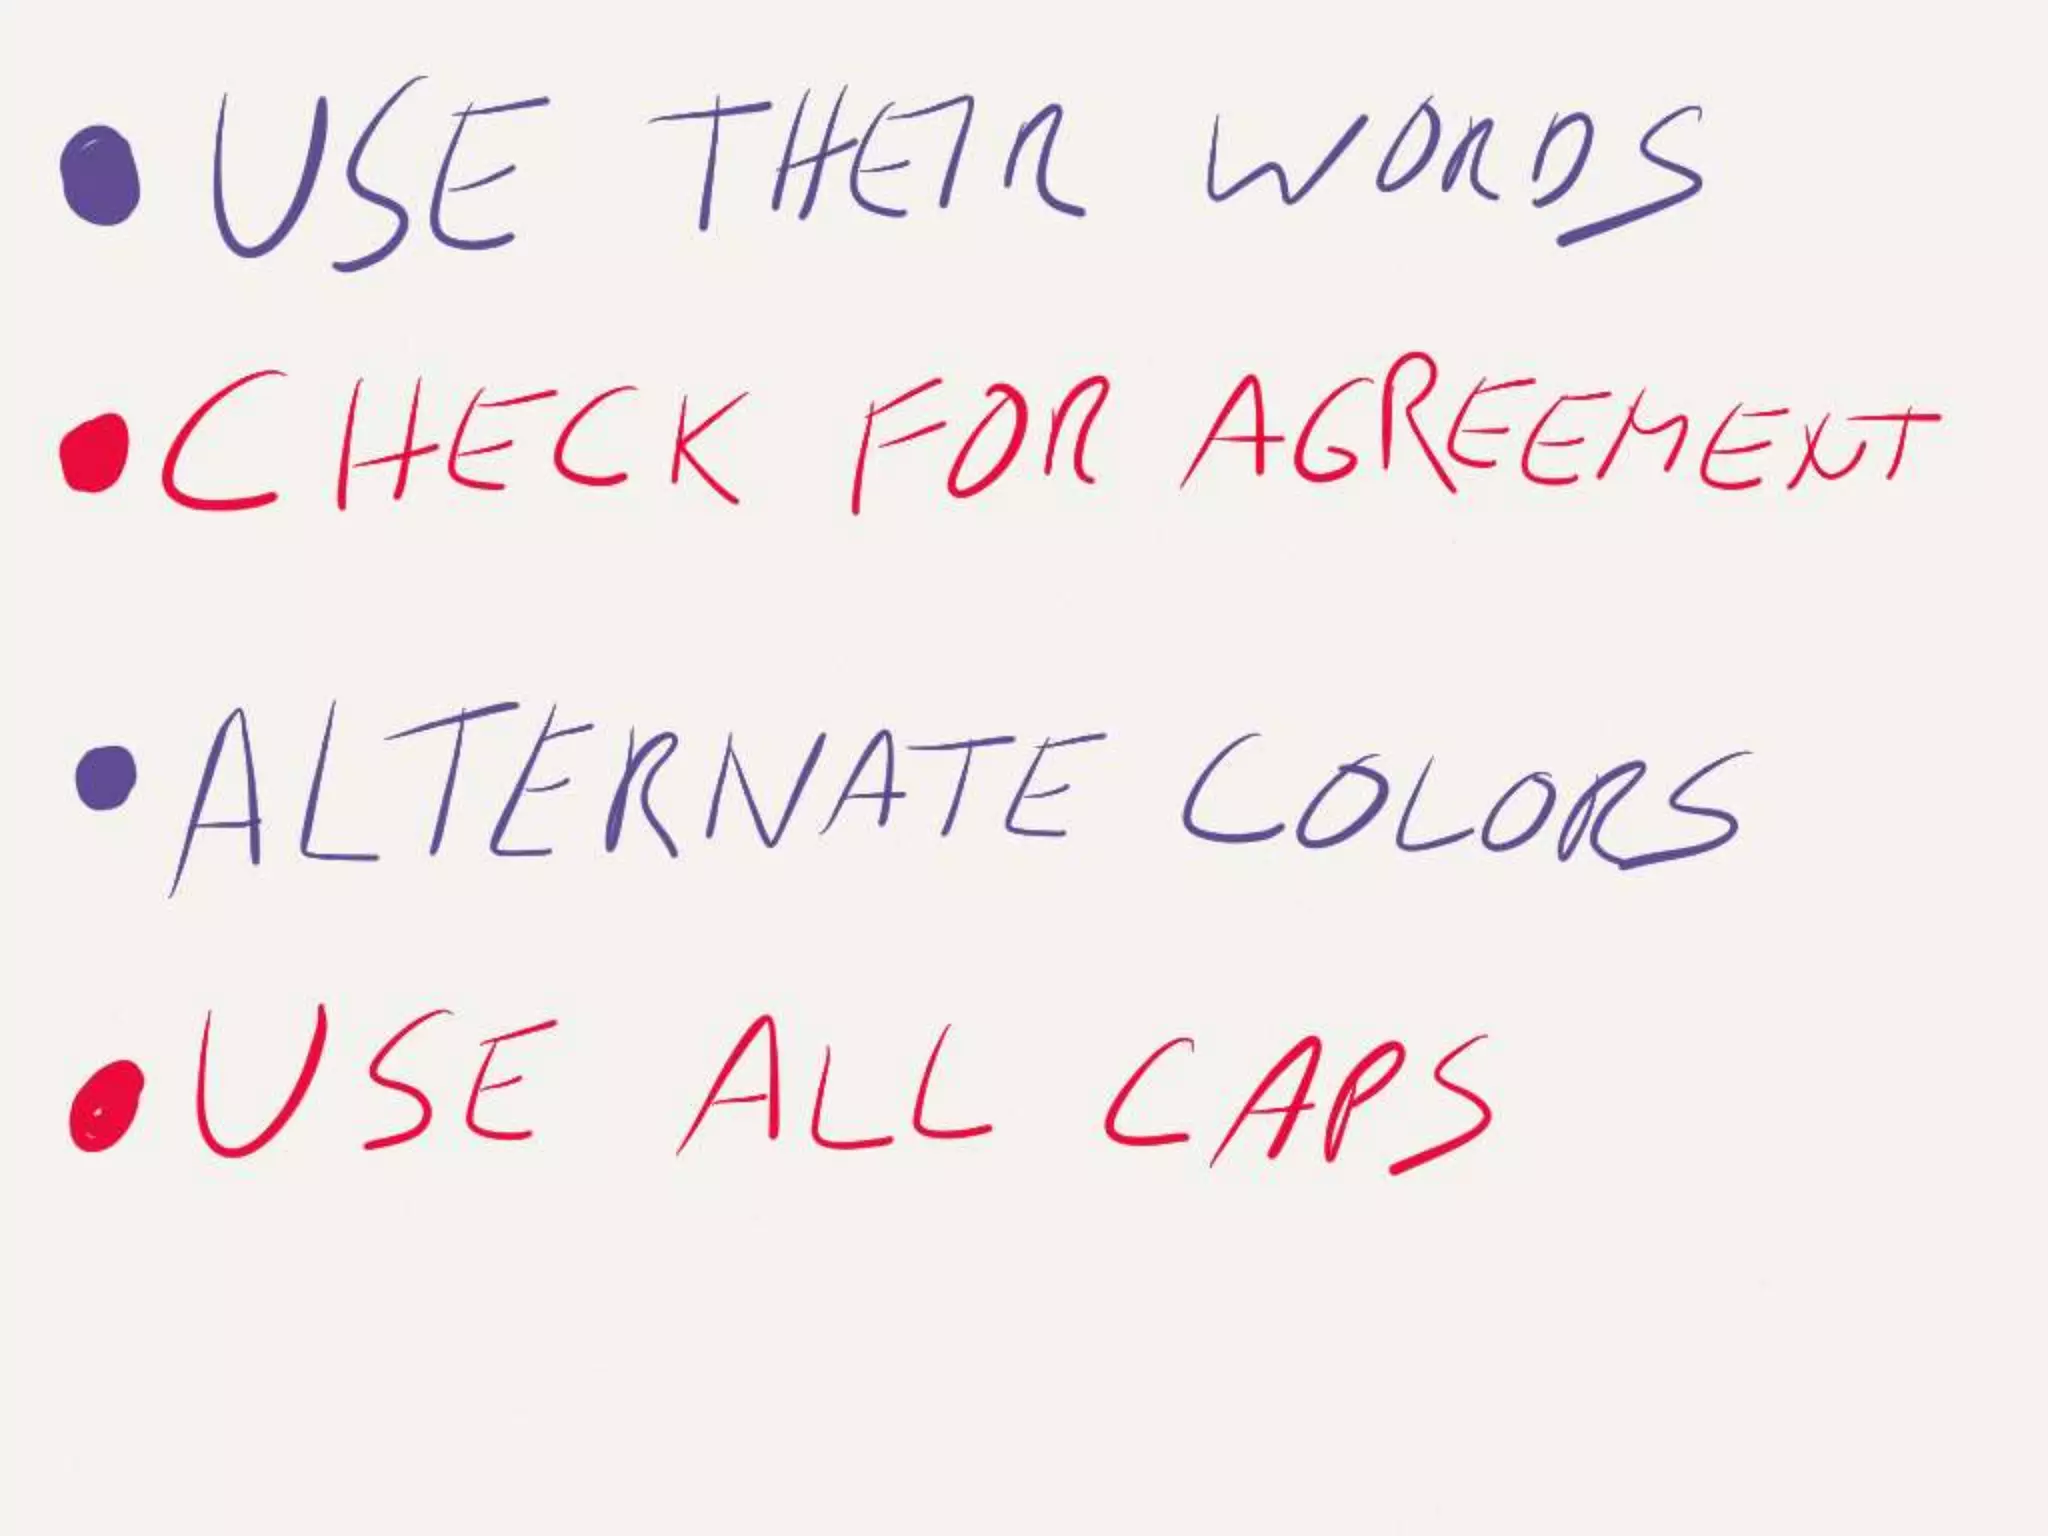 • USE THEIR WORDS
• CHECK FOR AGREEMENT
• ALTERNATE COLORS
• USE ALL CAPS